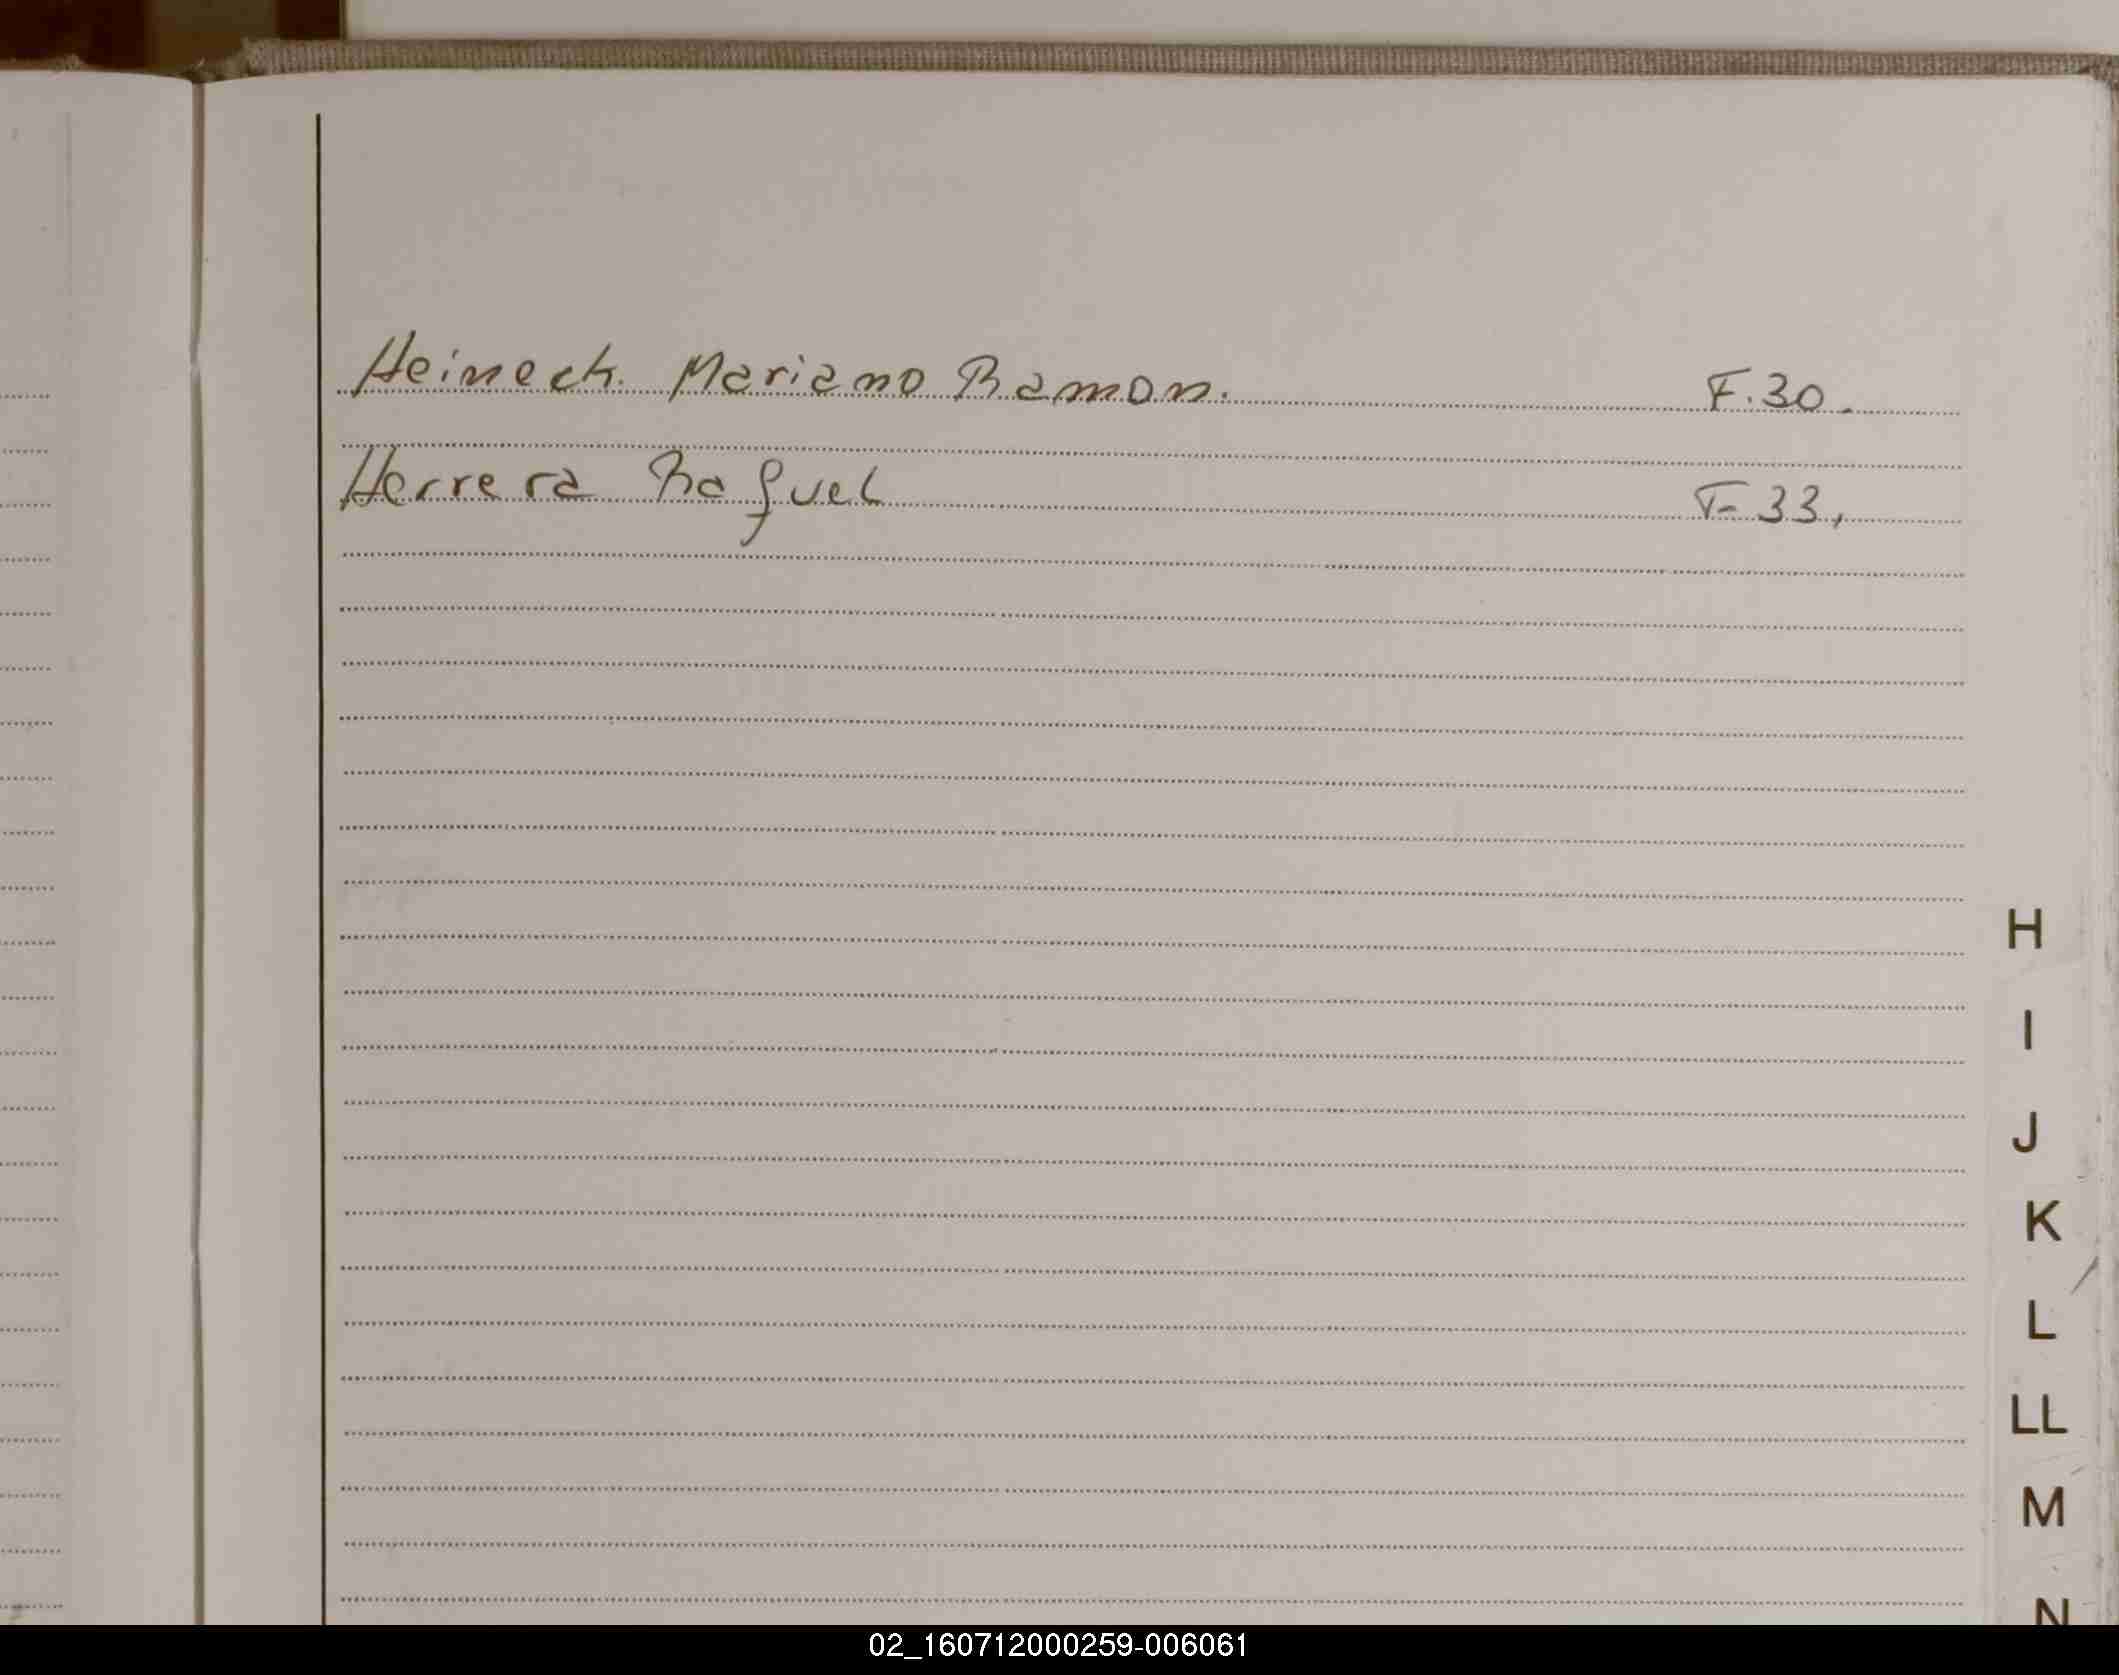 Heineck. Mariano Ramon. F.30.
Herrera Raquel F-33,
H
I
J
K
L
LL
M
N
02_160712000259-006061